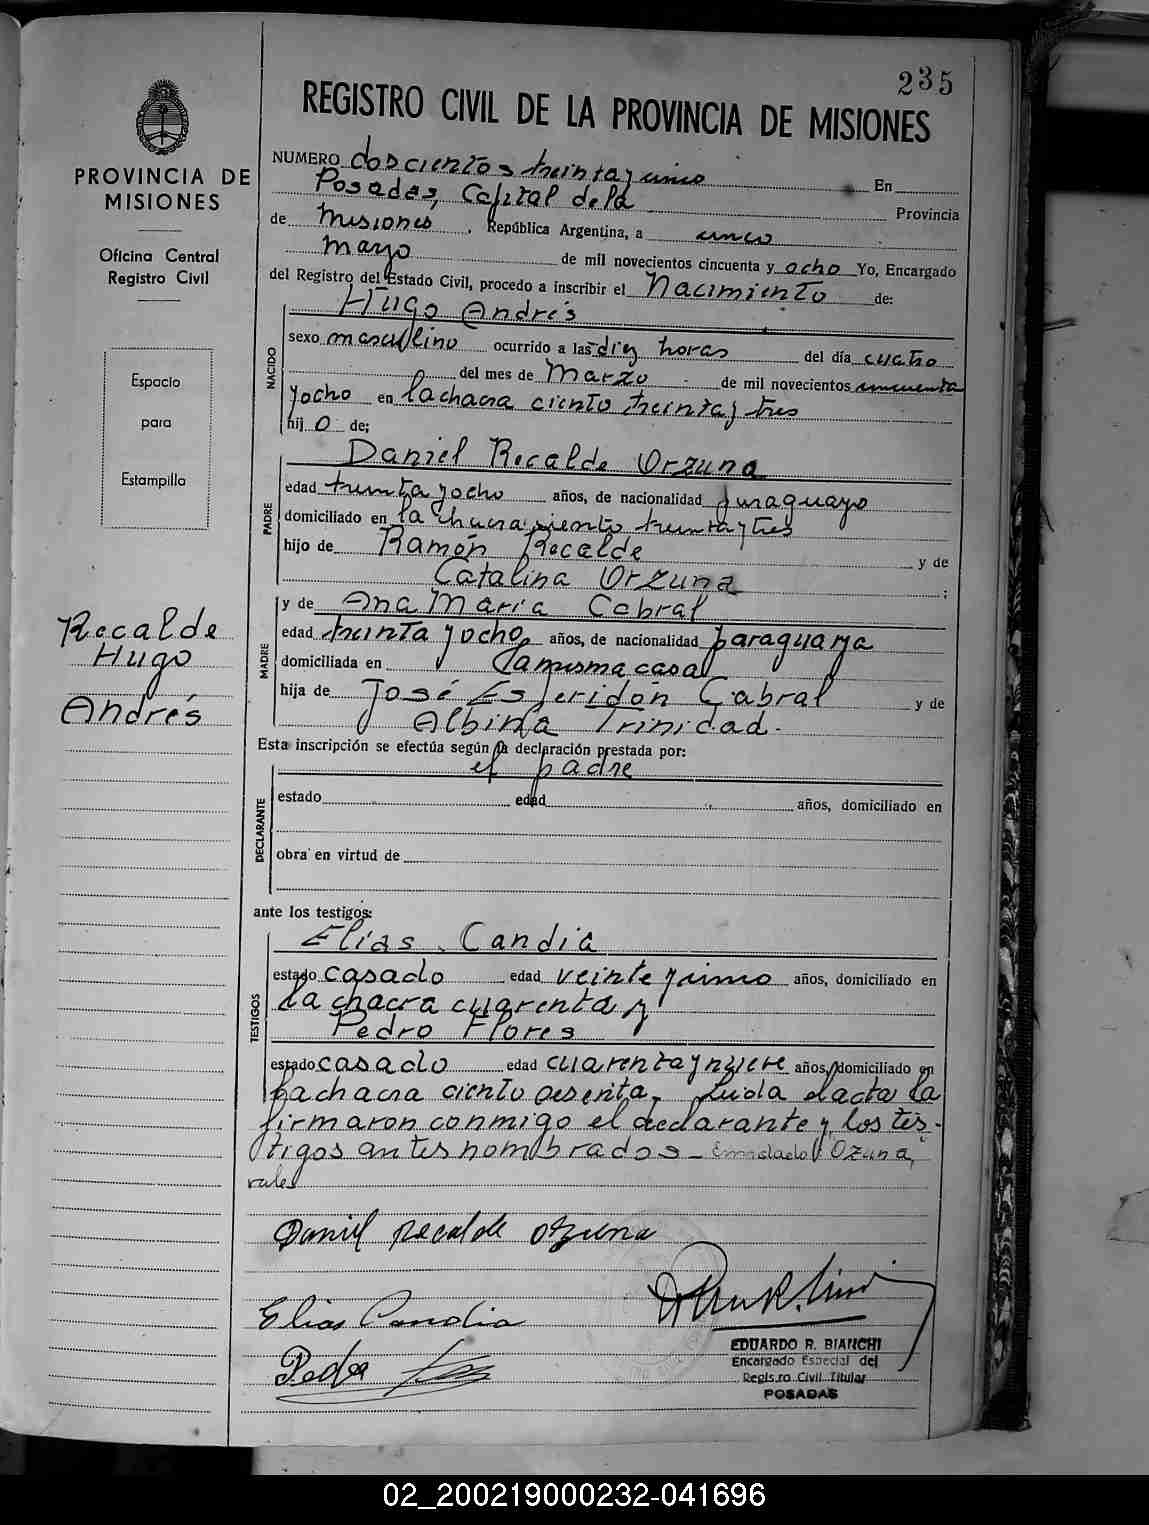 235
REGISTRO CIVIL DE LA PROVINCIA DE MISIONES
PROVINCIA DE
MISIONES
Oficina Central
Registro Civil
Espacio
para
Estampilla
Recalde
Hugo
Andrés
NUMERO doscientos treinta y cinco En
Posadas, Capital de la Provincia
de Misiones, República Argentina, a cinco
mayo de mil novecientos cincuenta y ocho Yo, Encargado
del Registro del Estado Civil, procedo a inscribir el Nacimiento de:
Hugo Andrés
NACIDO
sexo masculino ocurrido a las diez horas del día cuatro
del mes de Marzo de mil novecientos cincuenta
y ocho en la chacra ciento treinta y tres
hijo de;
PADRE
Daniel Recalde Orzuna
edad treinta y ocho años, de nacionalidad paraguayo
domiciliado en la chacra siento treinta y tres
hijo de Ramón Recalde y de
Catalina Orzuna;
MADRE
y de Ana María Cabral
edad treinta y ocho años, de nacionalidad paraguaya
domiciliada en la misma casa
hija de José Esperidón Cabral y de
Albina Trinidad.
Esta inscripción se efectúa según la declaración prestada por:
el padre
DECLARANTE
estado edad años, domiciliado en
obra en virtud de
ante los testigos:
TESTIGOS
Elías Candia
estado casado edad veinte y cinco años, domiciliado en
la chacra cuarenta y
Pedro Flores
estado casado edad cuarenta y nueve años, domiciliado en
la chacra ciento sesenta. Leida el acta la
firmaron conmigo el declarante y los tes-
tigos antes nombrados - Enmendado: Ozuna,
vale
Daniel Recalde Ozuna
Elias Candia
Pedro
EDUARDO R. BIANCHI
Encargado Especial del
Registro Civil Titular
POSADAS
02_200219000232-041696